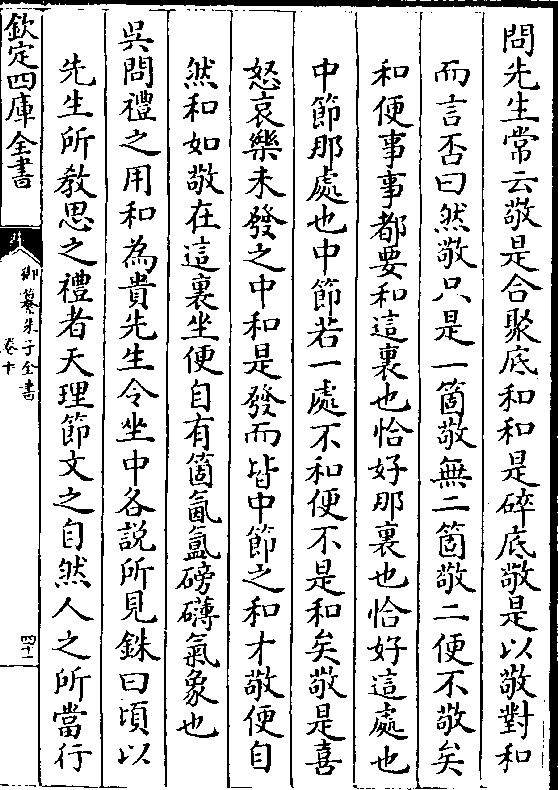 問先生常云敬是合聚底和和是碎底敬是以敬對和
而言否曰然敬只是一箇敬無二箇敬二便不敬矣
和便事事都要和這裏也恰好那裏也恰好這處也
中節那處也中節若一處不和便不是和矣敬是喜
怒哀樂未發之中和是發而皆中節之和才敬便自
然和如敬在這裏坐便自有箇氤氳磅礴氣象也
吳問禮之用和為貴先生令坐中各說所見銖曰頃以
先生所教思之禮者天理節文之自然人之所當行
欽定四庫全書
御纂朱子全書
卷十
四十